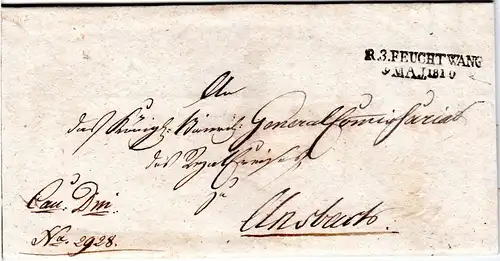 R.3.FEUCHTWANG
9 MAJ.1810
An
das Königl: Bairisch: General Commissariat
des Rezat Creises
zu
Ansbach.
Cau: Dni:
No. 2928.